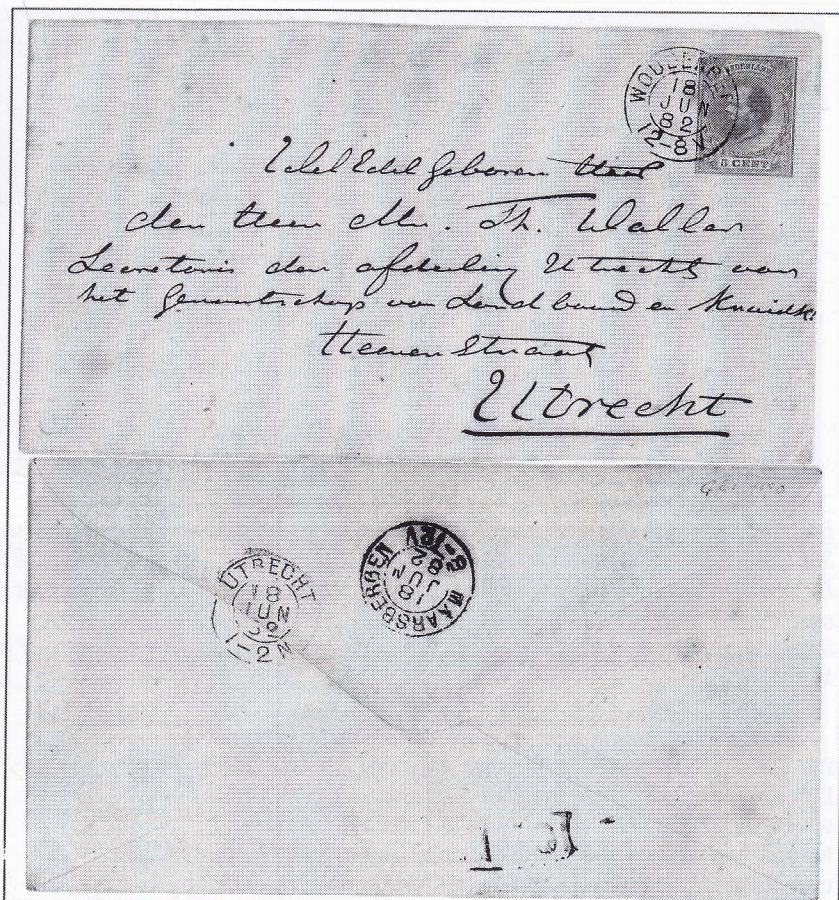 WOUDENBERG
18
JUN
82
8-12V
NEDERLAND
5 CENT
WelEdelgeboren Heer
den Heer Mr. Th. Waller
Secretaris der afdeeling Utrecht van
het Genootschap van Landbouw en Kruidk:
Heerenstraat
Utrecht
UTRECHT
18
JUN
82
1-2N
MAARSBERGEN
18
JUN
82
8-12V